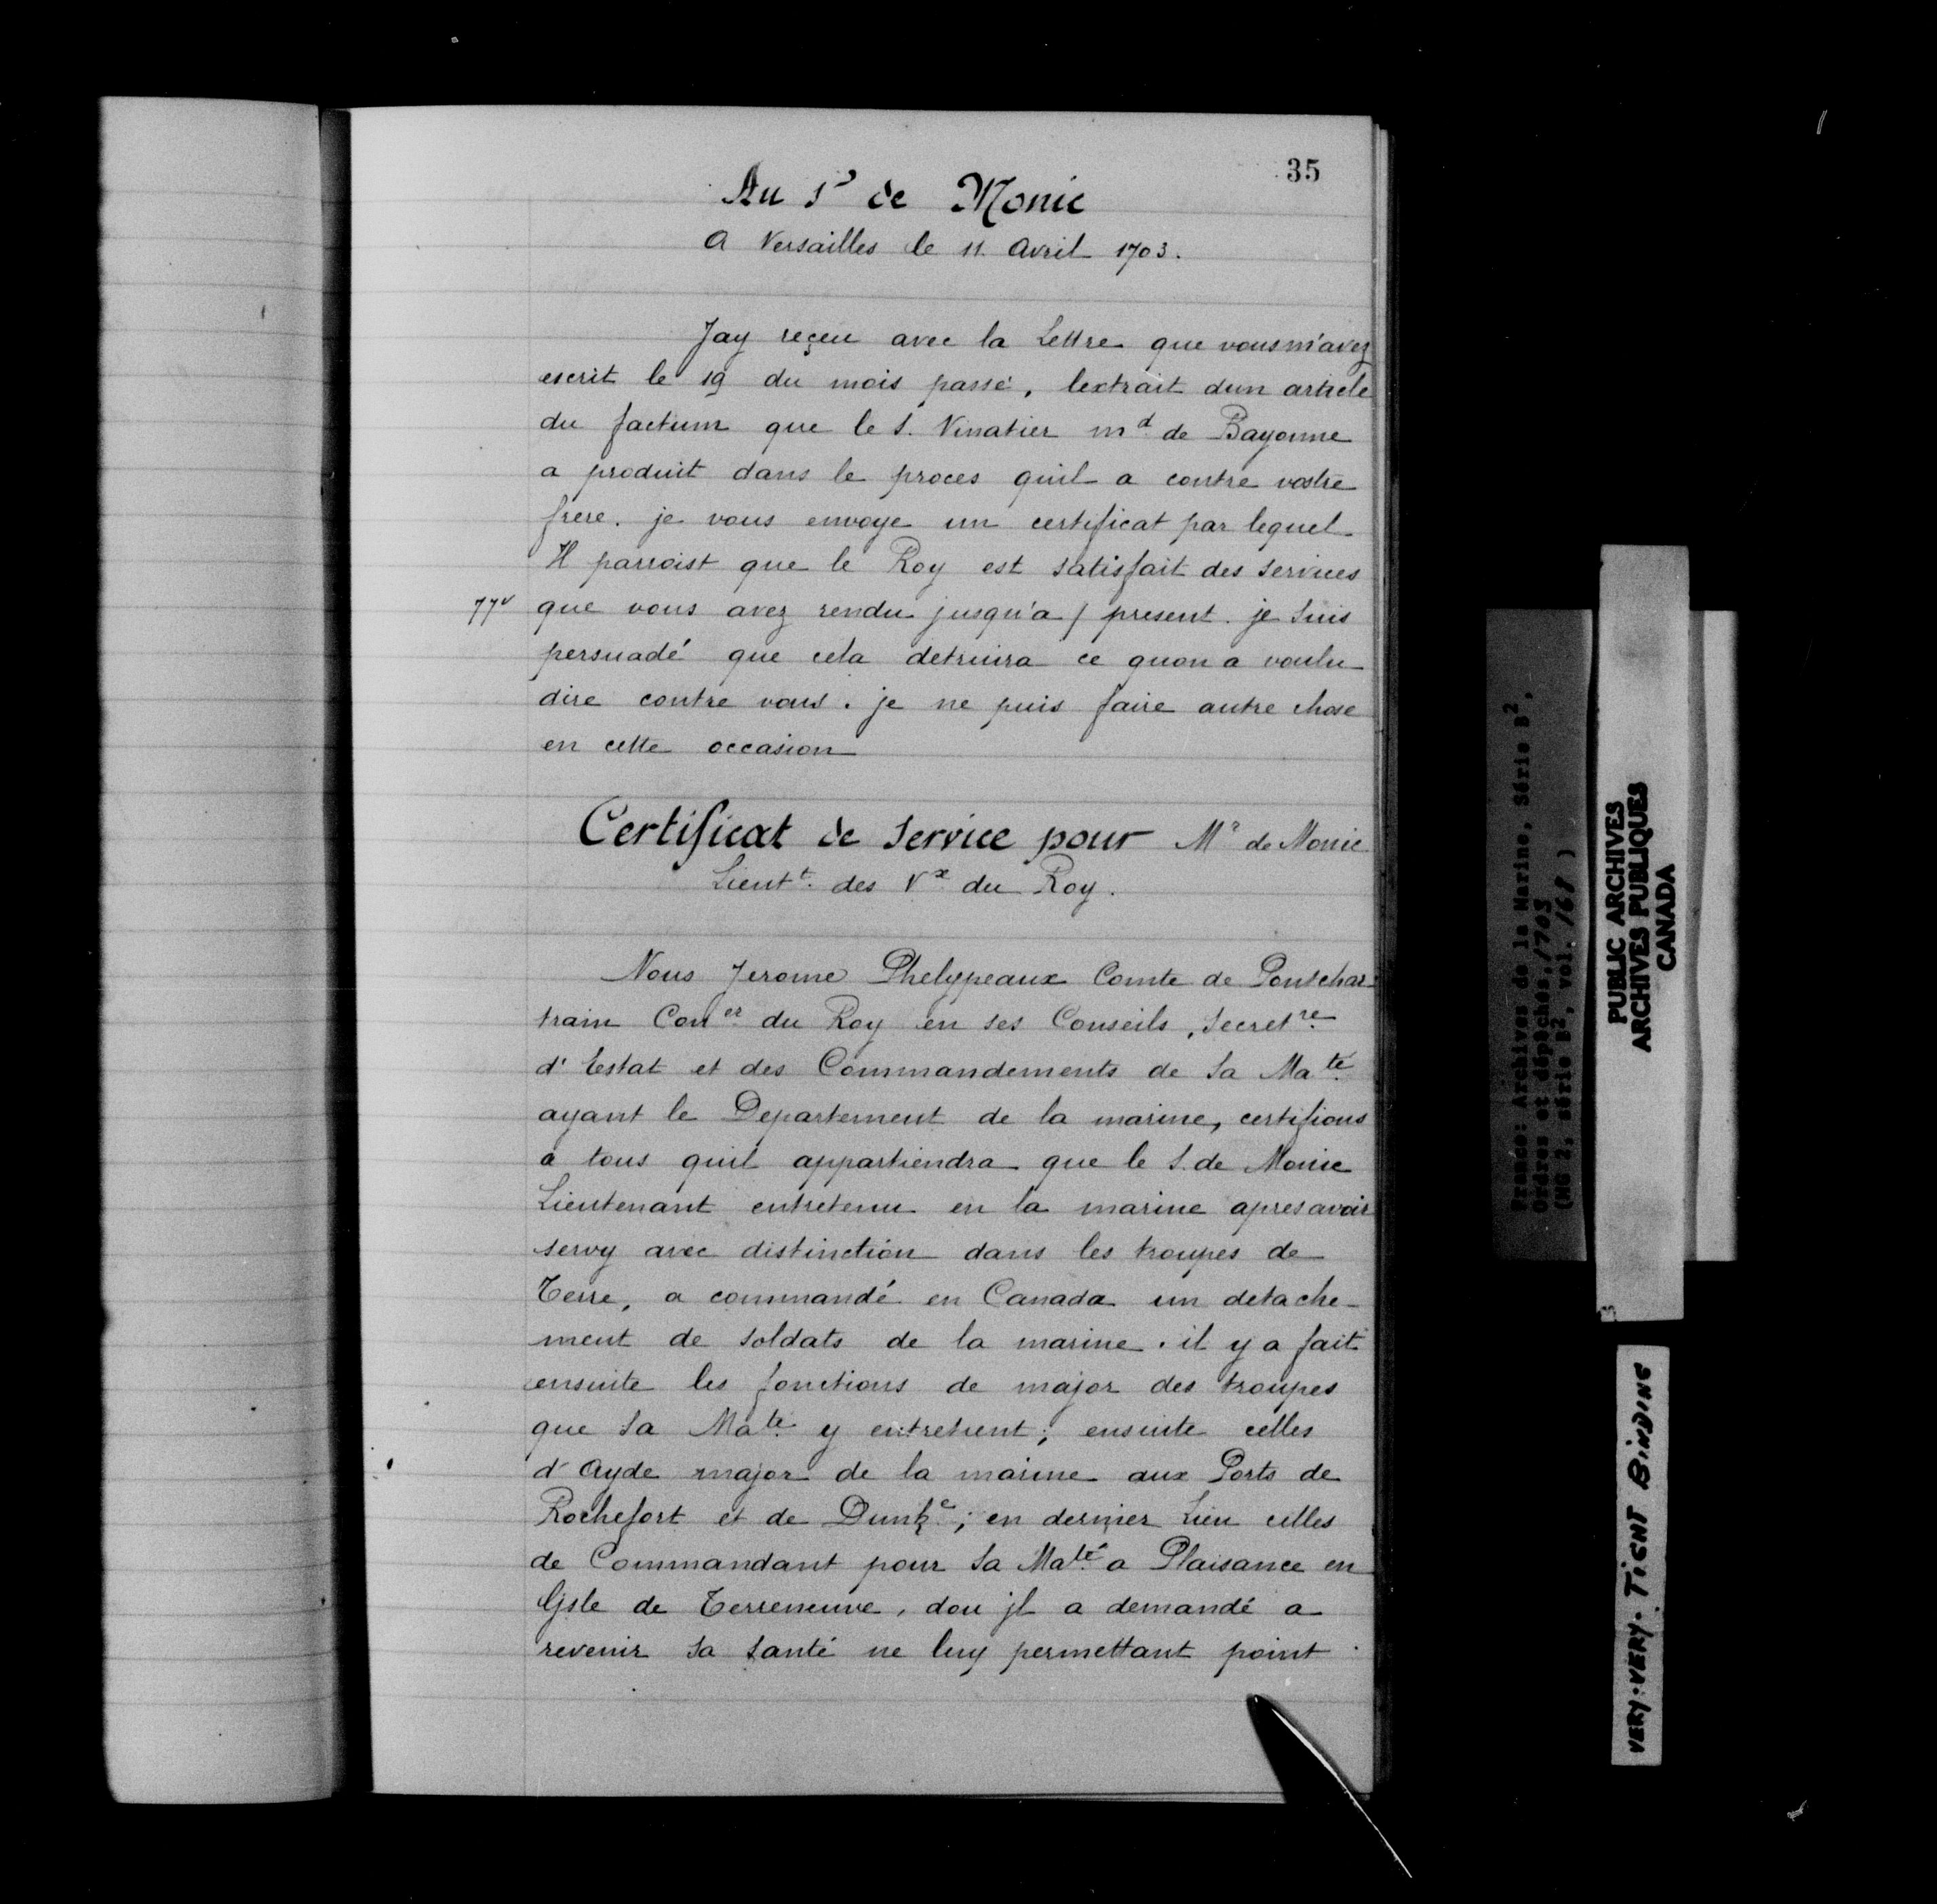 35
Au Sr de Monic
A Versailles le 11. Avril 1703.
Jay reçeu avec la Lettre que vous m'avez
escrit le 19 du mois passé, lextrait dun article
du factum que le S. Vinatier md de Bayonne
a produit dans le proces quil a contre vostre
frere. je vous envoye un certificat par lequel
Il parroist que le Roy est satisfait des services
77v que vous avez rendu jusqu'a / present. je suis
persuadé que cela detruira ce quon a voulu
dire contre vous. je ne puis faire autre chose
en cette occasion
Certificat de Service pour Mr de Monic
Lieutt. des Vx du Roy.
Nous Jerome Phelypeaux Comte de Pontchar-
train Coner du Roy en ses Conseils, Secretre
d'Estat et des Commandements de Sa Maté
ayant le Departement de la marine, certifions
a tous quil appartiendra que le S. de Monic
Lieutenant entretenu en la marine apres avoir
servy avec distinction dans les troupes de
Terre, a commandé en Canada un detache-
ment de soldats de la marine. il y a fait
ensuite les fonctions de major des troupes
que Sa Mate y entretient; ensuite celles
d'Ayde major de la marine aux Ports de
Rochefort et de Dunke; en dernier Lieu celles
de Commandant pour Sa Maté a Plaisance en
Ljsle de Terreneuve, dou jl a demandé a
revenir sa santé ne luy permettant point
France: Archives de la Marine, Série B2,
Ordres et dépêches, 1703
(MG 2, série B2, vol. 168)
PUBLIC ARCHIVES
ARCHIVES PUBLIQUES
CANADA
VERY·VERY· TIGHT BINDING